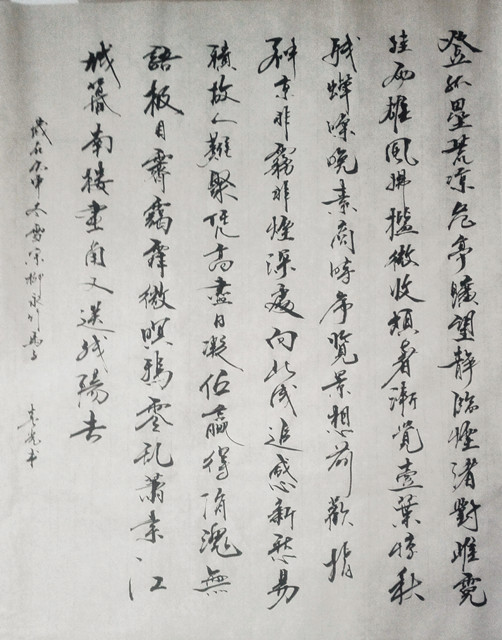 登孤壘荒涼危亭曠望靜臨煙渚對雌霓
挂雨雄風拂檻微收煩暑漸覺壹葉驚秋
殘蟬噪晚素商時序覽景想前歡指
神京非霧非煙深處向此成追感新愁易
積故人難聚凭高盡日凝佇贏得消魂無
語极目霽靄霏微暝鴉零乱蕭索江
城暮南樓畫角又送殘陽去
歲在丙申冬雪宋柳永竹馬子 書